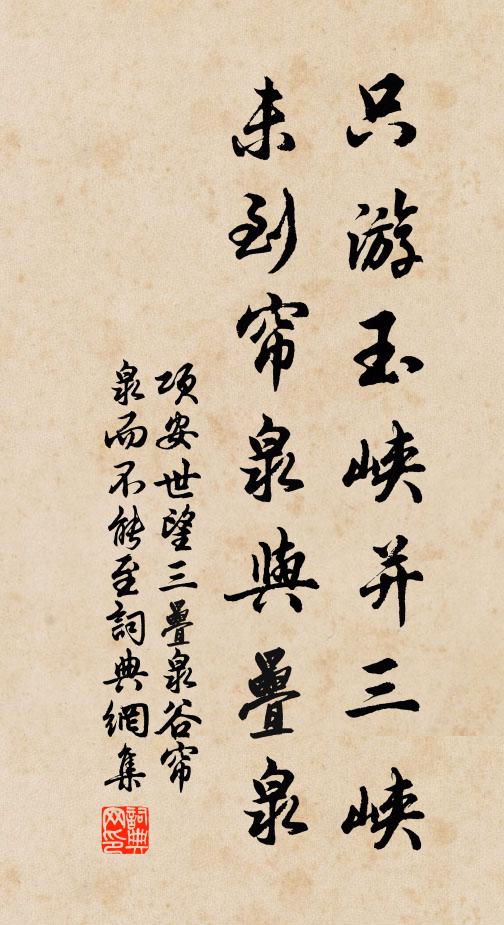 只游玉峡并三峡
未到帘泉與疊泉
项安世望三疊泉谷帘
泉而不能至詞典網集
詞典网印